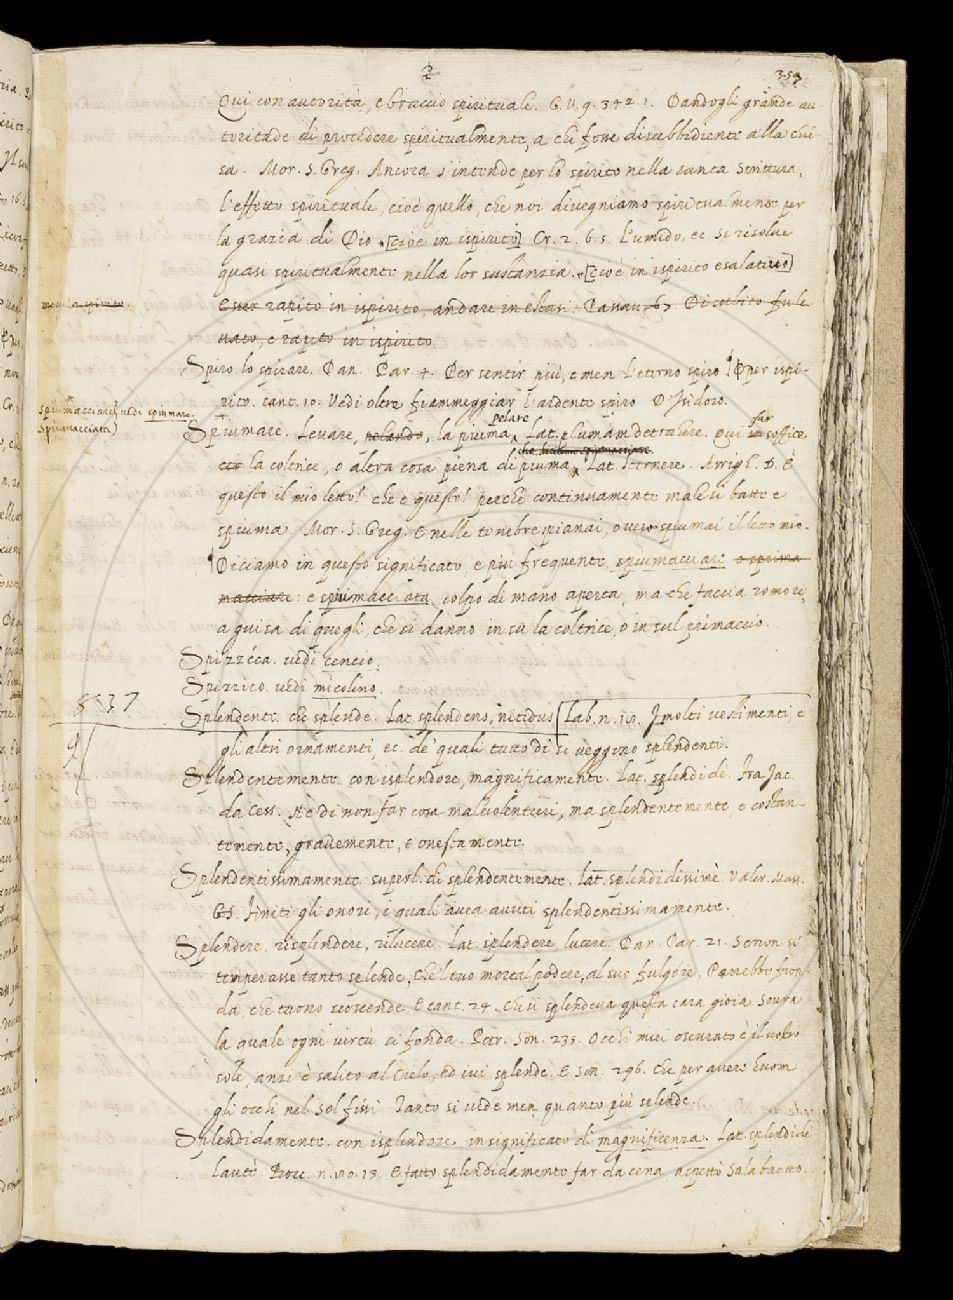 359
Qui con autorità, e braccio spirituale. G. V. 9. 342. 1. Dandogli grande au-
toritade di procedere spiritualmente, a chi fosse disubbidiente alla chie-
sa. Mor. S. Greg. Ancora s'intende per lo spirito nella santa Scrittura,
l'effetto spirituale, cioè quello, che noi divegniamo spiritualmente per
la grazia di Dio [cioè in ispirito] Cr. 2. 6. 5. L'umido, ec. si risolve
quasi spiritualmente nella lor sustanzia. [cioè in ispirito esalativo]
Esser rapito in ispirito, andare in estasi. Di subito fu le-
vato, e rapito in ispirito.
Spiro. lo spirare. Dan. Par. 4. Per sentir più, e men l'eterno spiro. per ispi-
rito. cant. 10. Vedi oltre fiammeggiar l'ardente spiro D'Isidoro.
spiumacciare vedi spiumare.
spiumacciata
Spiumare. Levare, pelando, la piuma, Lat. plumam detrahere. Qui in soffice
pelare
far
la coltrice, o altra cosa piena di piuma, Lat. sternere. Arrigh. D. È
questo il mio letto? che è questo? perchè continuamente male si batte e
spiuma. Mor. S. Greg. E nelle tenebre spianai, o vero spiumai il letto mio.
Diciamo in questo significato, e più frequente, spiumacciare o sprima-
macciare: e spiumacciata, colpo di mano aperta, ma che faccia romore,
a guisa di quegli, che si danno in su la coltrice, o in sul primaccio.
Spizzéca. vedi cencio.
Spizzico. vedi micolino.
8537
Splendente. che splende. Lat. splendens, nitidus [Lab. n. 191. I molti vestimenti, e
gli altri ornamenti, ec. de' quali tutto dì si veggono splendenti.
Splendentemente. con isplendore, magnificamente. Lat. splendidè. Fra Jac.
da Cess. Nè di non far cosa malvolentieri, ma splendentemente, e costan-
temente, gravemente, e onestamente.
Splendentissimamente. superl. di splendentemente. lat. splendidissimè. Valer. Mass.
G.S. Finiti gli onori, i quali avea avuti splendentissimamente.
Splendere, risplendere, rilucere. Lat. splendere, lucere. Dan. Par. 21. Se non si
temperasse tanto splende, Che 'l tuo mortal podere, al suo fulgóre, Parrebbe fron-
da, che tuono scoscende. E cant. 24. Che lì splendeva questa cara gioia Sovra
la quale ogni virtù si fonda. Petr. Son. 235. Occhi miei oscurato è il vostro
sole, anzi è salito al Cielo, ed ivi splende. E Son. 296. Che per avere huom
gli occhi nel Sol fissi Tanto si vede men, quanto più splende.
Splendidamente. con isplendore in significato di magnificenza. Lat. splendidè
lautè. Bocc. n. 100. 13. E fatto splendidamente far da cena aspettò Salabaetto.